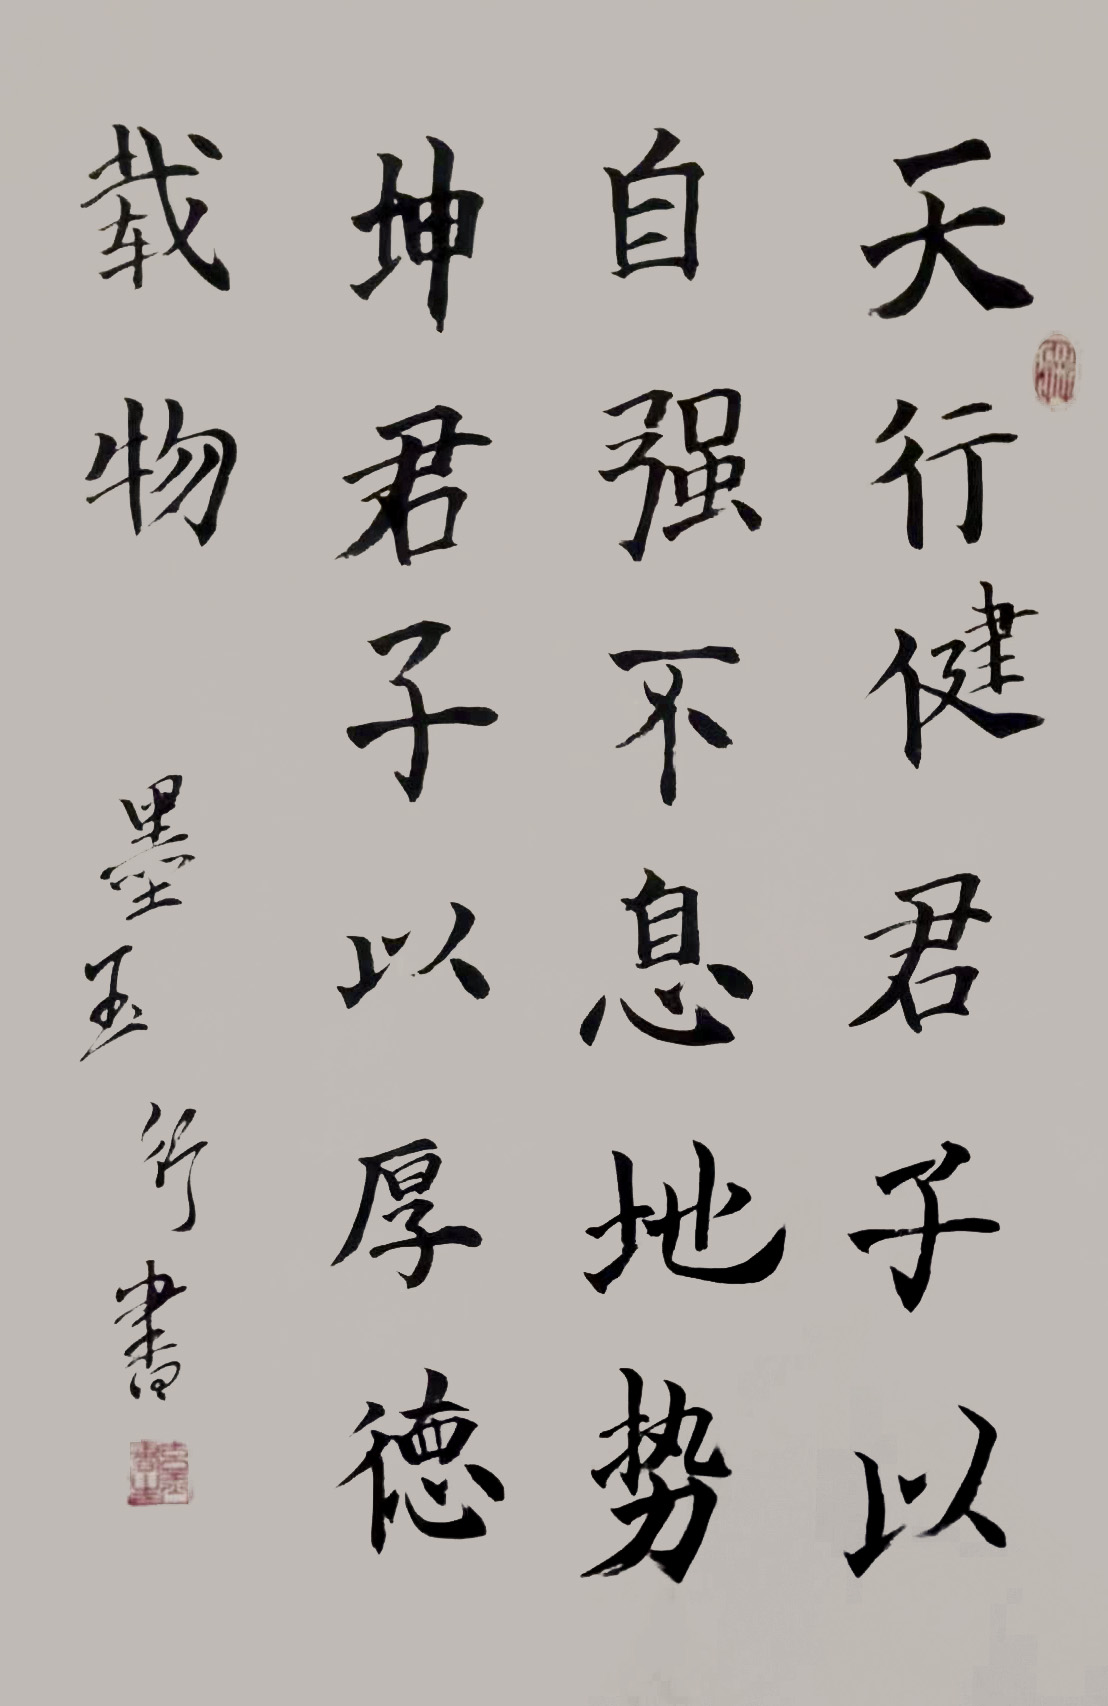 天行健君子以
自强不息地势
坤君子以厚德
载物
墨玉行書